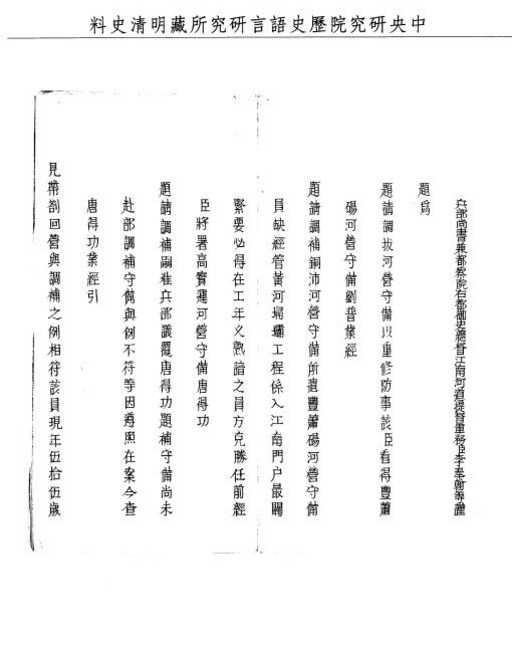 中央研究院歷史語言研究所藏明清史料
兵部尚書兼都察院右都御史總督江南河道提督軍務臣李奉翰等謹
題為
題請調拔河營守備以重修防事該臣看得豐蕭
碭河營守備劉普業經
題請調補銅沛河營守備所遺豐蕭碭河營守備
員缺經管黃河埽壩工程係入江南門户最關
緊要必得在工年久熟諳之員方克勝任前經
臣將署高寶運河營守備唐得功
題請調補嗣准兵部議覆唐得功題補守備尚未
赴部調補守備與例不符等因遵照在案今查
唐得功業經引
見帶劄回營與調補之例相符該員現年伍拾伍歲